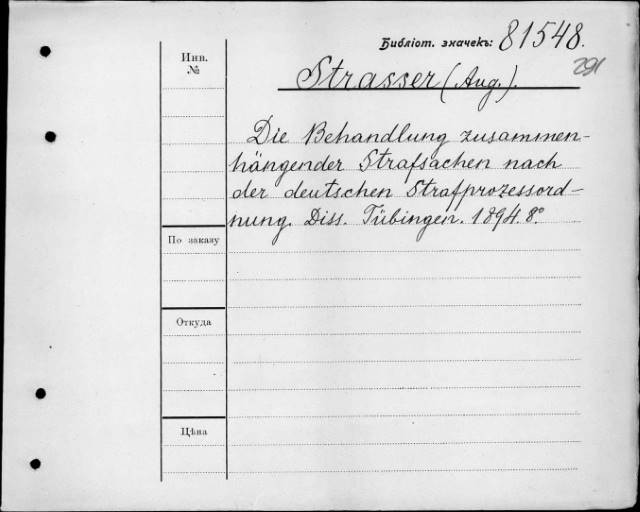 Библіот. значекъ: 81548.
291
Инв.
№
Strasser (Aug.).
Die Behandlung zusammen-
hängender Strafsachen nach
der deutschen Strafprozessord-
nung. Diss. Tübingen. 1894. 8°
По заказу
Откуда
Цѣна